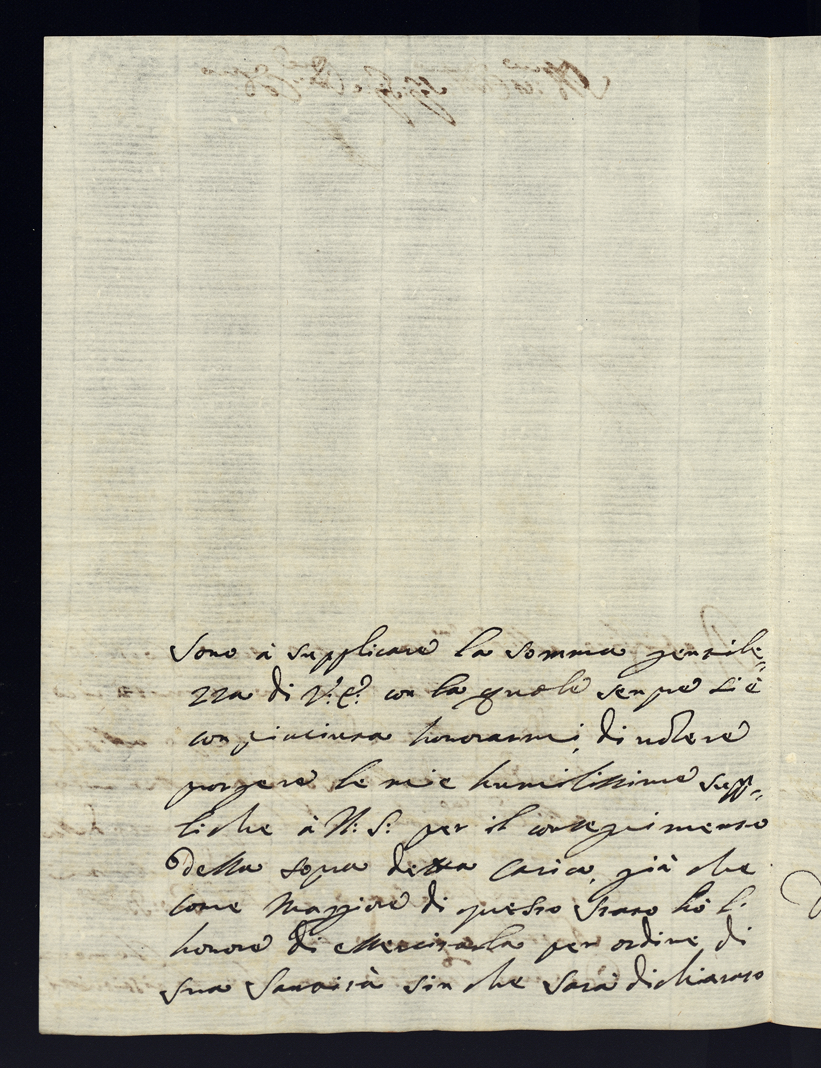 Sono à supplicare la somma gentile-
zza di V.E. con la quale senpre si è
conpiaciuta honorarmi, di volere
porgere le mie humilissime supp-
liche à N: S: per il conseguimento
della sopra detta Carica, già che
come Maggiore di questo Stato hò l'
honore di esercitarla per ordine di
sua Santità sin che sarà dichiarato